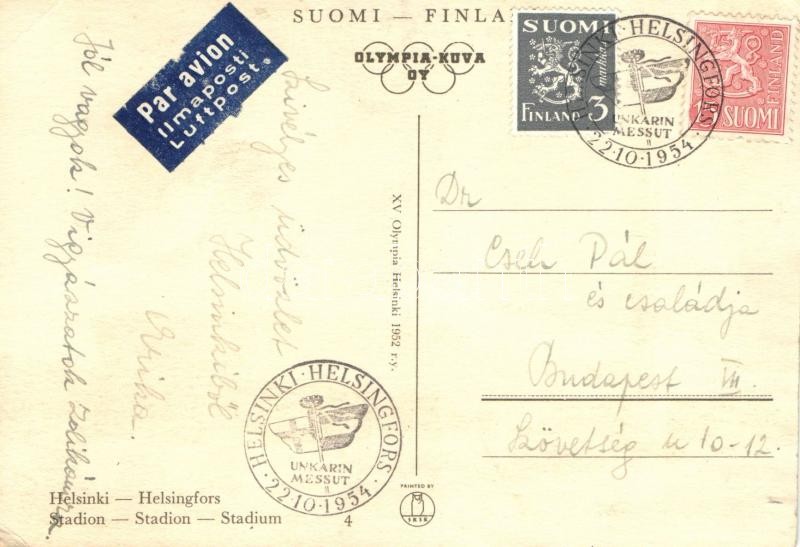 SUOMI — FINLA
OLYMPIA-KUVA
OY
Par avion
Ilmaposti
Luftpost.
SUOMI
markkaa
3
FINLAND
FINLAND
SUOMI
HELSINKI · HELSINGFORS ·
UNKARIN
MESSUT
22·10·1954
Jól vagyok! Vigyázzatok
Szivélyes üdvözlet
Helsinkiből
XV Olympia Helsinki 1952 r.y.
Dr
Cseh Pál
és családja
Budapest
Szövetség u 10-12.
HELSINKI · HELSINGFORS ·
UNKARIN
MESSUT
22·10·1954
Helsinki — Helsingfors
Stadion — Stadion — Stadium 4
PRINTED BY
SKSK